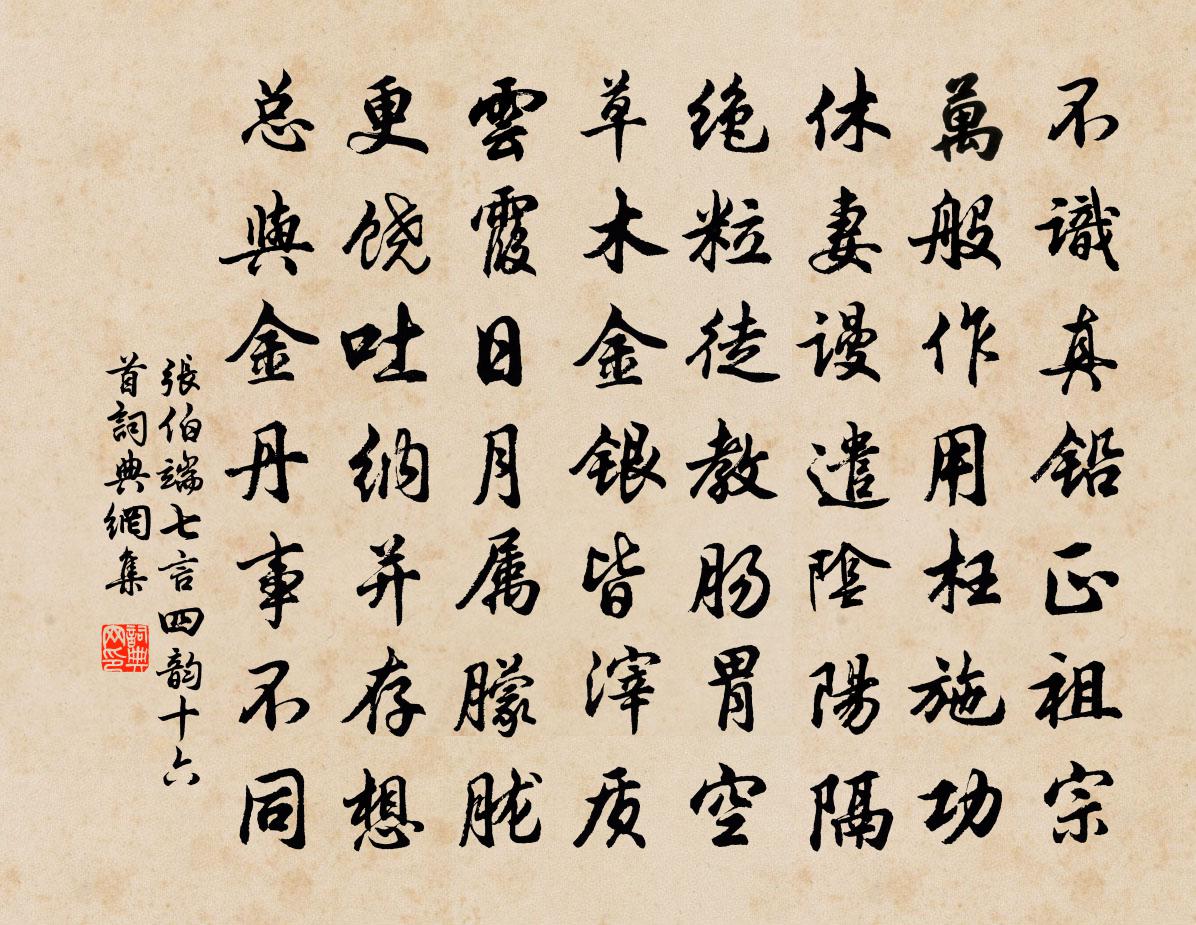 不識真鉛正祖宗
萬般作用枉施功
休妻谩遣陰陽隔
绝粒徒教肠胃空
草木金銀皆滓质
雲霞日月属朦胧
更饶吐纳并存想
总與金丹事不同
張伯端七言四韵十六
首詞典網集
詞典
网印